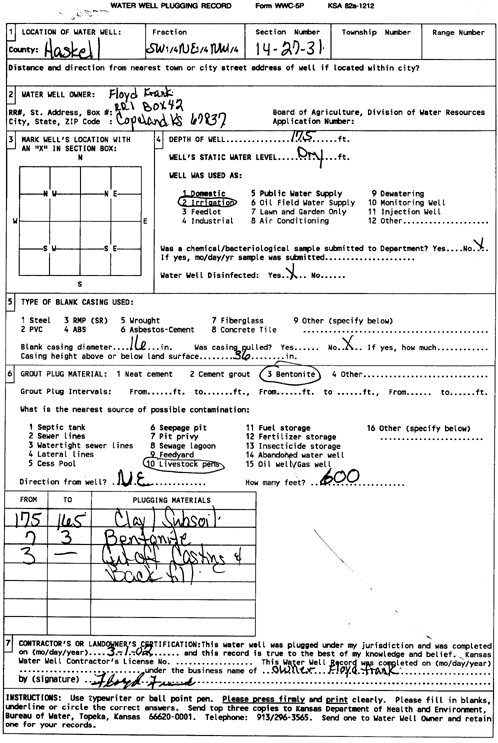 WATER WELL PLUGGING RECORD Form WWC-5P KSA 82a-1212
1 LOCATION OF WATER WELL: Fraction Section Township Number Range Number
County: Haskell SW¼NE¼NW¼ 14-27-31
Distance and direction from nearest town or city street address of well if located within city?
2 WATER WELL OWNER: Floyd Frank
RR#, St. Address, Box #: RR1 Box 42 Board of Agriculture, Division of Water Resources
City, State, ZIP Code : Copeland KS 67837 Application Number:
3 MARK WELL'S LOCATION WITH AN "X" IN SECTION BOX:
N
N W N E
W E
S W S E
S
4 DEPTH OF WELL 175 ft.
WELL'S STATIC WATER LEVEL Dry ft.
WELL WAS USED AS:
1 Domestic 5 Public Water Supply 9 Dewatering
2 Irrigation 6 Oil Field Water Supply 10 Monitoring Well
3 Feedlot 7 Lawn and Garden Only 11 Injection Well
4 Industrial 8 Air Conditioning 12 Other
Was a chemical/bacteriological sample submitted to Department? Yes....No..X
If yes, mo/day/yr sample was submitted
Water Well Disinfected: Yes X No
5 TYPE OF BLANK CASING USED:
1 Steel 3 RMP (SR) 5 Wrought 7 Fiberglass 9 Other (specify below)
2 PVC 4 ABS 6 Asbestos-Cement 8 Concrete Tile
Blank casing diameter 16 in. Was casing pulled? Yes...... No X If yes, how much
Casing height above or below land surface 36 in.
6 GROUT PLUG MATERIAL: 1 Neat cement 2 Cement grout 3 Bentonite 4 Other
Grout Plug Intervals: From......ft. to ......ft., From......ft. to ......ft., From...... to ......ft.
What is the nearest source of possible contamination:
1 Septic tank 6 Seepage pit 11 Fuel storage 16 Other (specify below)
2 Sewer lines 7 Pit privy 12 Fertilizer storage
3 Watertight sewer lines 8 Sewage lagoon 13 Insecticide storage
4 Lateral lines 9 Feedyard 14 Abandoned water well
5 Cess Pool 10 Livestock pens 15 Oil well/Gas well
Direction from well? N.E How many feet? 600
FROM TO PLUGGING MATERIALS
175 165 Clay / Subsoil
7 3 Bentonite
3 — Cut off Casting &
Back fill
7 CONTRACTOR'S OR LANDOWNER'S CERTIFICATION: This water well was plugged under my jurisdiction and was completed
on (mo/day/year) 3-1-02 and this record is true to the best of my knowledge and belief. Kansas
Water Well Contractor's License No. This Water Well Record was completed on (mo/day/
year) under the business name of owner Floyd Frank
by (signature) Floyd Frank
INSTRUCTIONS: Use typewriter or ball point pen. Please press firmly and print clearly. Please fill in blanks,
underline or circle the correct answers. Send top three copies to Kansas Department of Health and Environment,
Bureau of Water, Topeka, Kansas 66620-0001. Telephone: 913/296-3565. Send one to Water Well Owner and retain
one for your records.